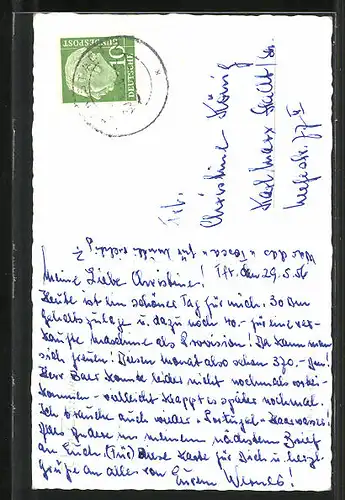 DEUTSCHE
BUNDESPOST
10
Frl.
Christine König
Karl-Marx-Stadt
Meine Liebe Christine! Ffr. den 29.5.56
Heute ist ein schöner Tag für mich. 30 Dm
Gehaltszulage u. dazu noch 40.- für eine ver-
kaufte Maschine als Provision! Da kann man
sich freuen! Diesen Monat also schon 370.- Dm!
Herr Baer konnte leider nicht nochmals vorbei-
kommen - vielleicht klappt es später nochmal.
Ich brauche auch wieder "Portugal" Haarwasser!
in meinem nächsten Brief
an Euch. (Für) Diese Karte für Dich u. herzl.
Grüße an alles von Eurem Werner!